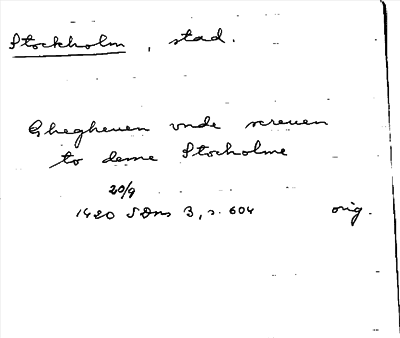 Stockholm, stad.
Ghegheuen vnde screuen
to deme Stocholme
20/9
1420 SDns 3, s. 604 orig.